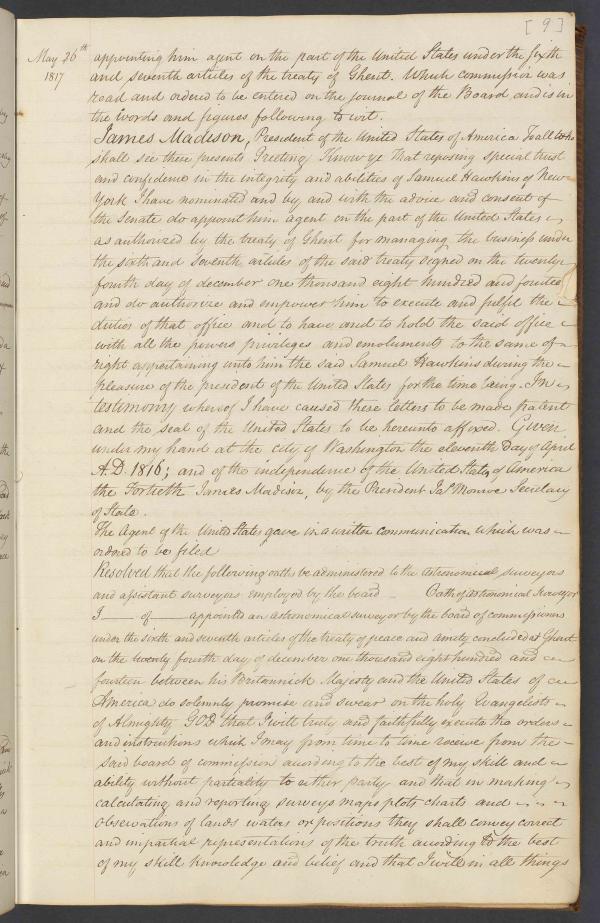 [ 9 ]
May 26th
1817
appointing him agent on the part of the United States under the sixth
and seventh articles of the treaty of Ghent. Which commission was
read and ordered to be entered on the journal of the Board and is in
the words and figures following to wit.
James Madison, President of the United States of America To all who
shall see these presents Greeting Know ye That reposing special trust
and confidence in the integrity and abilities of Samuel Hawkins of New
York I have nominated and by and with the advice and consent of
the Senate do appoint him agent on the part of the United States
as authorized by the treaty of Ghent for managing the business under
the sixth and seventh articles of the said treaty signed on the twenty
fourth day of december one thousand eight hundred and fourteen
and do authorize and empower him to execute and fulfil the
duties of that office and to have and to hold the said office
with all the powers privileges and emoluments to the same of
right appertaining unto him the said Samuel Hawkins during the
pleasure of the president of the United States for the time being. In
testimony whereof I have caused these letters to be made patent
and the seal of the United States to be hereunto affixed. Given
under my hand at the city of Washington the eleventh day of April
A.D. 1816; and of the independence of the United States of America
the Fortieth James Madison, by the President Jas Monroe Secretary
of State.
The Agent of the United States gave in a written communication which was
ordered to be filed
Resolved that the following oaths be administered to the astronomical surveyors
and assistant surveyors employed by the board — Oath of astronomical Surveyor
I —— of —— appointed an astronomical surveyor by the board of commissioners
under the sixth and seventh articles of the treaty of peace and amity concluded at Ghent
on the twenty fourth day of december one thousand eight hundred and
fourteen between his Britannick Majesty and the United States of
America do solemnly promise and swear on the holy Evangelists
of Almighty GOD that I will truly and faithfully execute the orders
and instructions which I may from time to time receive from the
said board of commission according to the best of my skill and
ability without partiality to either party and that in making
calculating and reporting surveys maps plots charts and
observations of lands waters or positions they shall convey correct
and impartial representations of the truth according to the best
of my skill knowledge and belief and that I will in all things